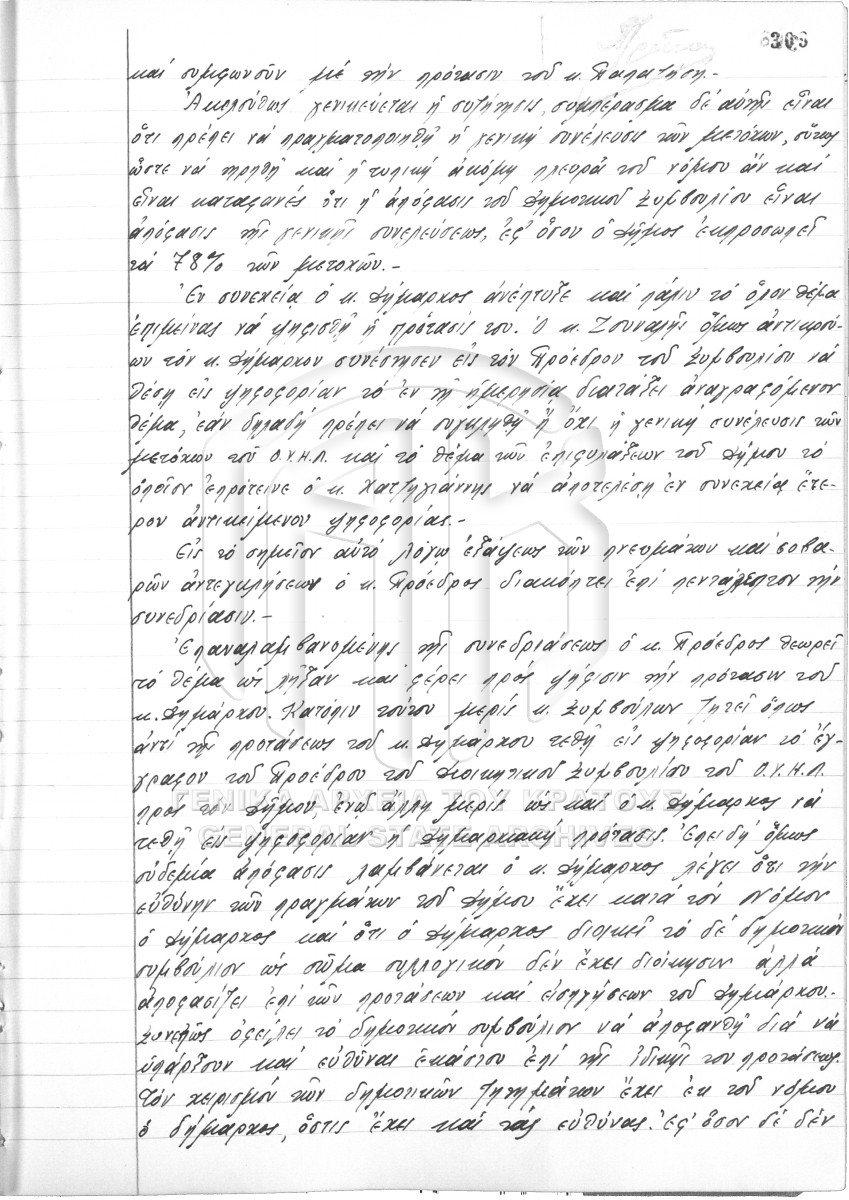 306
καί συμφωνοῦν μέ τήν πρότασιν τοῦ κ. Παπατζήση.-
Ἀκολούθως γενικεύεται ἡ συζήτησις, συμπέρασμα δέ αὐτῆς εἶναι
ὅτι πρέπει νά πραγματοποιηθῆ ἡ γενική συνέλευσις τῶν μετόχων, οὕτως
ὥστε νά τηρηθῆ καί ἡ τυπική ἀκόμη πλευρά τοῦ νόμου ἄν καί
εἶναι καταφανές ὅτι ἡ ἀπόφασις τοῦ Δημοτικοῦ Συμβουλίου εἶναι
ἀπόφασις τῆς γενικῆς συνελεύσεως, ἐφ' ὅσον ὁ Δῆμος ἐκπροσωπεῖ
τά 78% τῶν μετοχῶν.-
Ἐν συνεχεία ὁ κ. Δήμαρχος ἀνέπτυξε καί πάλιν τό ὅλον θέμα
ἐπιμείνας νά ψηφισθῆ ἡ πρότασίς του. Ὁ κ. Ζουναλῆς ὅμως ἀντικρού-
ων τόν κ. Δήμαρχον συνέστησεν εἰς τόν Πρόεδρον τοῦ Συμβουλίου νά
θέση εἰς ψηφοφορίαν τό ἐν τῆ ἡμερησία διατάξει ἀναγραφόμενον
θέμα, ἐάν δηλαδή πρέπει νά συγκληθῆ ἤ ὄχι ἡ γενική συνέλευσις τῶν
μετόχων τοῦ Ο.Υ.Η.Λ. καί τό θέμα τῶν ἐπιφυλάξεων τοῦ Δήμου τό
ὁποῖον ἐπρότεινε ὁ κ. Χατζηγιάννης νά ἀποτελέση ἐν συνεχεία ἕτε-
ρον ἀντικείμενον ψηφοφορίας.-
Εἰς τό σημεῖον αὐτό λόγω ἐξάψεως τῶν πνευμάτων καί σοβα-
ρῶν ἀντεγκλήσεων ὁ κ. Πρόεδρος διακόπτει ἐπί πεντάλεπτον τήν
συνεδρίασιν.-
Ἐπαναλαμβανομένης τῆς συνεδριάσεως ὁ κ. Πρόεδρος θεωρεῖ
τό θέμα ὡς λῆξαν καί φέρει πρός ψήφισιν τήν πρότασιν τοῦ
κ. Δημάρχου. Κατόπιν τούτου μερίς κ. Συμβούλων ζητεῖ ὅπως
ἀντί τῆς προτάσεως τοῦ κ. Δημάρχου τεθῆ εἰς ψηφοφορίαν τό ἔγ-
γραφον τοῦ Προέδρου τοῦ Διοικητικοῦ Συμβουλίου τοῦ Ο.Υ.Η.Λ.
πρός τόν Δῆμον, ἐνῶ ἄλλη μερίς ὡς καί ὁ κ. Δήμαρχος νά
τεθῆ εἰς ψηφοφορίαν ἡ Δημαρχιακή πρότασις. Ἐπειδή ὅμως
οὐδεμία ἀπόφασις λαμβάνεται ὁ κ. Δήμαρχος λέγει ὅτι τήν
εὐθύνην τῶν πραγμάτων τοῦ Δήμου ἔχει κατά τόν νόμον
ὁ Δήμαρχος καί ὅτι ὁ Δήμαρχος διοικεῖ τό δέ δημοτικόν
συμβούλιον ὡς σῶμα συλλογικόν δέν ἔχει διοίκησιν ἀλλά
ἀποφασίζει ἐπί τῶν προτάσεων καί εἰσηγήσεων τοῦ Δημάρχου.-
Συνεπῶς ὀφείλει τό δημοτικόν συμβούλιον νά ἀποφανθῆ διά νά
ὑπάρξουν καί εὐθῦναι ἑκάστου ἐπί τῆς ἰδικῆς του προτάσεως.
Τόν χειρισμόν τῶν δημοτικῶν ζητημάτων ἔχει ἐκ τοῦ νόμου
ὁ δήμαρχος, ὅστις ἔχει καί τάς εὐθύνας. Ἐφ' ὅσον δέ δέν
ΓΕΝΙΚΑ ΑΡΧΕΙΑ ΤΟΥ ΚΡΑΤΟΥΣ
GENERAL STATE ARCHIVES